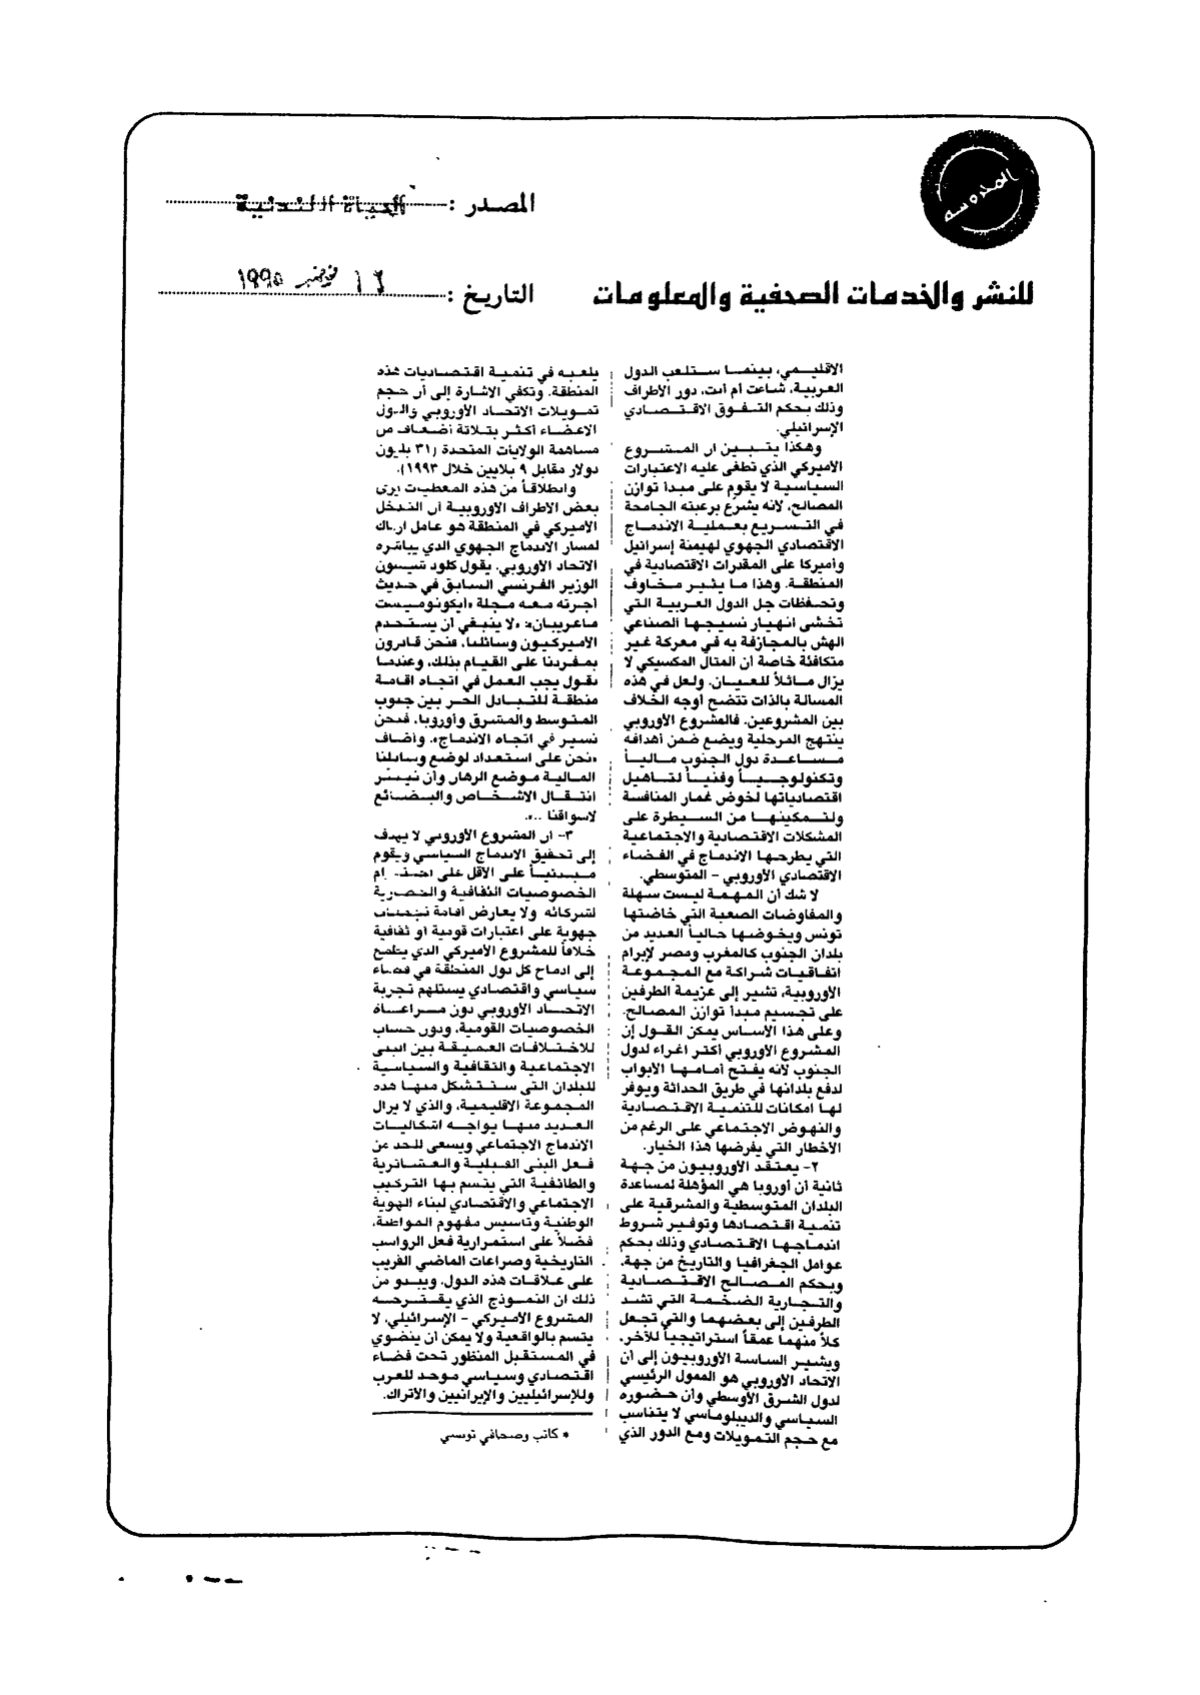 المدروسه
المصدر : الحياة اللندنية
للنشر والخدمات الصحفية والمعلومات
التاريخ : ١٦ نوفمبر ١٩٩٥
الاقليمي، بينما ستلعب الدول
العربية، شاءت أم أبت، دور الأطراف
وذلك بحكم التفوق الاقتصادي
الإسرائيلي.
وهكذا يتبين ان المشروع
الأميركي الذي تطغى عليه الاعتبارات
السياسية لا يقوم على مبدأ توازن
المصالح، لأنه يشرّع برغبته الجامحة
في التسريع بعملية الاندماج
الاقتصادي الجهوي لهيمنة إسرائيل
وأميركا على المقدرات الاقتصادية في
المنطقة. وهذا ما يثير مخاوف
وتحفظات جل الدول العربية التي
تخشى انهيار نسيجها الصناعي
الهش بالمجازفة به في معركة غير
متكافئة خاصة أن المثال المكسيكي لا
يزال ماثلاً للعيان. ولعل في هذه
المسألة بالذات تتضح أوجه الخلاف
بين المشروعين. فالمشروع الأوروبي
ينتهج المرحلية ويضع ضمن أهدافه
مساعدة دول الجنوب مالياً
وتكنولوجياً وفنياً لتأهيل
اقتصادياتها لخوض غمار المنافسة
ولتمكينها من السيطرة على
المشكلات الاقتصادية والاجتماعية
التي يطرحها الاندماج في الفضاء
الاقتصادي الأوروبي - المتوسطي.
لا شك أن المهمة ليست سهلة
والمفاوضات الصعبة التي خاضتها
تونس ويخوضها حالياً العديد من
بلدان الجنوب كالمغرب ومصر لإبرام
اتفاقيات شراكة مع المجموعة
الأوروبية، تشير إلى عزيمة الطرفين
على تجسيم مبدأ توازن المصالح.
وعلى هذا الأساس يمكن القول إن
المشروع الأوروبي أكثر اغراء لدول
الجنوب لأنه يفتح أمامها الأبواب
لدفع بلدانها في طريق الحداثة ويوفر
لها امكانات للتنمية الاقتصادية
والنهوض الاجتماعي على الرغم من
الأخطار التي يفرضها هذا الخيار.
٢- يعتقد الأوروبيون من جهة
ثانية أن أوروبا هي المؤهلة لمساعدة
البلدان المتوسطية والمشرقية على
تنمية اقتصادها وتوفير شروط
اندماجها الاقتصادي وذلك بحكم
عوامل الجغرافيا والتاريخ من جهة،
وبحكم المصالح الاقتصادية
والتجارية الضخمة التي تشد
الطرفين إلى بعضهما والتي تجعل
كلاً منهما عمقاً استراتيجياً للآخر.
ويشير الساسة الأوروبيون إلى أن
الاتحاد الأوروبي هو الممول الرئيسي
لدول الشرق الأوسطي وأن حضوره
السياسي والديبلوماسي لا يتناسب
مع حجم التمويلات ومع الدور الذي
يلعبه في تنمية اقتصاديات هذه
المنطقة. وتكفي الاشارة إلى أن حجم
تمويلات الاتحاد الأوروبي والدول
الاعضاء أكثر بثلاثة أضعاف من
مساهمة الولايات المتحدة (٣١ بليون
دولار مقابل ٩ بلايين خلال ١٩٩٣).
وانطلاقاً من هذه المعطيات يرى
بعض الاطراف الاوروبية ان التدخل
الأميركي في المنطقة هو عامل ارباك
لمسار الاندماج الجهوي الذي يباشره
الاتحاد الأوروبي. يقول كلود شيسون
الوزير الفرنسي السابق في حديث
أجرته معه مجلة «ايكونوميست
ماغربيان»: «لا ينبغي أن يستخدم
الأميركيون وسائلنا، فنحن قادرون
بمفردنا على القيام بذلك، وعندما
نقول يجب العمل في اتجاه اقامة
منطقة للتبادل الحر بين جنوب
المتوسط والمشرق وأوروبا، فنحن
نسير في اتجاه الاندماج». وأضاف
«نحن على استعداد لوضع وسائلنا
المالية موضع الرهان وأن نيسّر
انتقال الاشخاص والبضائع
لاسواقنا ..».
٣- ان المشروع الأوروبي لا يهدف
إلى تحقيق الاندماج السياسي ويقوم
مبدئياً على الأقل على احترام
الخصوصيات الثقافية والحضارية
لشركائه ولا يعارض اقامة تجمعات
جهوية على اعتبارات قومية أو ثقافية
خلافاً للمشروع الأميركي الذي يطمح
إلى ادماج كل دول المنطقة في فضاء
سياسي واقتصادي يستلهم تجربة
الاتحاد الأوروبي دون مراعاة
الخصوصيات القومية، ودون حساب
للاختلافات العميقة بين البنى
الاجتماعية والثقافية والسياسية
للبلدان التي ستتشكل منها هذه
المجموعة الاقليمية، والذي لا يزال
العديد منها يواجه اشكاليات
الاندماج الاجتماعي ويسعى للحد من
فعل البنى القبلية والعشائرية
والطائفية التي يتسم بها التركيب
الاجتماعي والاقتصادي لبناء الهوية
الوطنية وتأسيس مفهوم المواطنة،
فضلاً على استمرارية فعل الرواسب
التاريخية وصراعات الماضي القريب
على علاقات هذه الدول. ويبدو من
ذلك ان النموذج الذي يقترحه
المشروع الأميركي - الإسرائيلي، لا
يتسم بالواقعية ولا يمكن أن ينضوي
في المستقبل المنظور تحت فضاء
اقتصادي وسياسي موحد للعرب
وللإسرائيليين والإيرانيين والأتراك.
* كاتب وصحافي تونسي